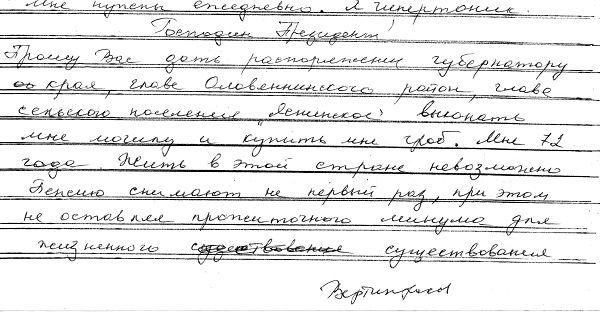 мне нужны ежедневно. Я гипертоник.
Господин Президент!
Прошу Вас дать распоряжение губернатору
края, главе Оловяннинского район, глава
сельского поселения „Яснинское“ выкопать
мне могилу и купить мне гроб. Мне 72
года. Жить в этой стране невозможно
Пенсию снимают не первый раз, при этом
не оставляя прожиточного минума для
жизненного существования существования